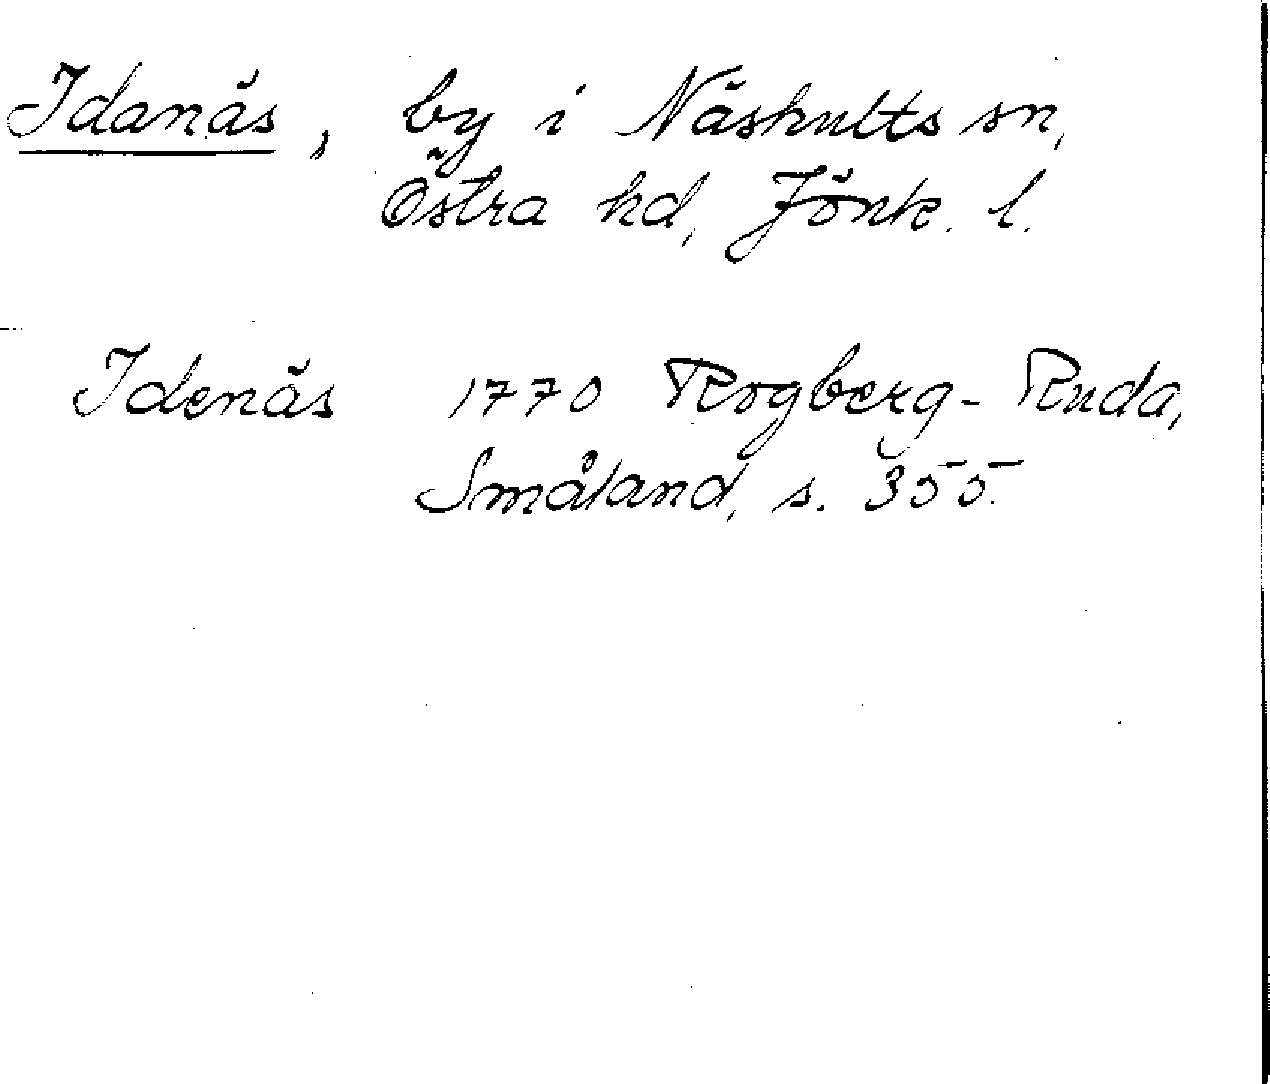 Idanäs, by i Näshults sn,
Östra hd, Jönk. l.
Idenäs 1770 Rogberg-Ruda,
Småland, s. 355.